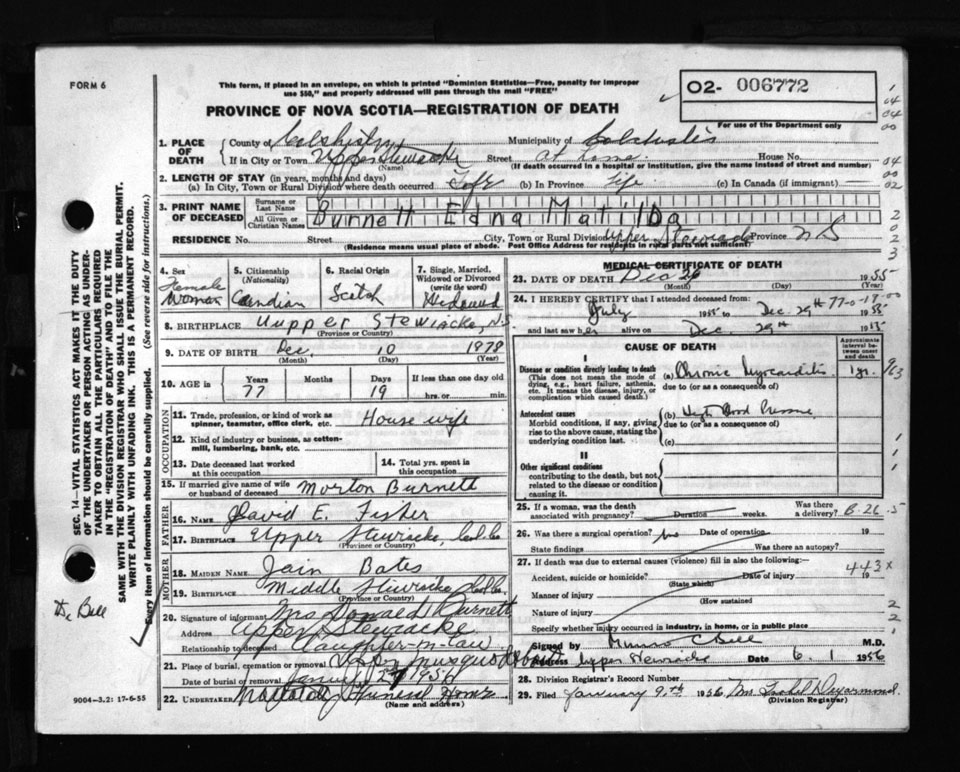 FORM 6
This form, if placed in an envelope, on which is printed "Dominion Statistics—Free, penalty for improper
use $50," and properly addressed will pass through the mail "FREE"
02- 006772
For use of the Department only
PROVINCE OF NOVA SCOTIA—REGISTRATION OF DEATH
1. PLACE OF DEATH
County of
Municipality of
If in City or Town Upper Stewiacke (Name) Street At home House No.
(If death occurred in a hospital or institution, give the name instead of street and number)
2. LENGTH OF STAY (in years, months and days)
(a) In City, Town or Rural Division where death occurred (b) In Province Life (c) In Canada (if immigrant)
3. PRINT NAME OF DECEASED
Surname or Last Name
All Given or Christian Names
Burnett Edna Matilda
RESIDENCE No. Street City, Town or Rural Division Upper Stewiacke Province N S
(Residence means usual place of abode. Post Office Address for residents in rural parts not sufficient)
4. Sex Female Woman
5. Citizenship (Nationality) Candian
6. Racial Origin Scotch
7. Single, Married, Widowed or Divorced (write the word) Widowed
8. BIRTHPLACE Uupper Stewiacke, N.S
(Province or Country)
9. DATE OF BIRTH Dec. 10 1878
(Month) (Day) (Year)
10. AGE in Years 77 Months Days 19 If less than one day old hrs. or min.
OCCUPATION
11. Trade, profession, or kind of work as spinner, teamster, office clerk, etc. House wife
12. Kind of industry or business, as cotton-mill, lumbering, bank, etc.
13. Date deceased last worked at this occupation
14. Total yrs. spent in this occupation
15. If married give name of wife or husband of deceased Morton Burnett
FATHER
16. NAME David E. Fisher
17. BIRTHPLACE Upper Stewiacke, Col. Co
(Province or Country)
MOTHER
18. MAIDEN NAME Jain Bates
19. BIRTHPLACE Middle Stewiacke
(Province or Country)
20. Signature of informant Mrs Donald Burnett
Address Upper Stewiacke
Relationship to deceased daughter-in-law
21. Place of burial, cremation or removal Upper Musquodoboit
Date of burial or removal January 2 1956
22. UNDERTAKER Funeral Home
(Name and address)
MEDICAL CERTIFICATE OF DEATH
23. DATE OF DEATH 1955
(Month) (Day)
24. I HEREBY CERTIFY that I attended deceased from:
July 1955 to Dec. 29 1955
and last saw her alive on Dec 29th 1955
77-0-19-00
CAUSE OF DEATH
Approximate interval between onset and death
I
Disease or condition directly leading to death
(This does not mean the mode of dying, e.g., heart failure, asthenia, etc. It means the disease, injury, or complication which caused death.)
(a) Chronic Myocarditis 1 yr.
due to (or as a consequence of)
Antecedent causes
Morbid conditions, if any, giving rise to the above cause, stating the underlying condition last.
(b) High Blood Pressure
due to (or as a consequence of)
(c)
II
Other significant conditions
contributing to the death, but not related to the disease or condition causing it.
25. If a woman, was the death associated with pregnancy? Duration weeks. Was there a delivery?
B-26-5
26. Was there a surgical operation? No Date of operation 19
State findings Was there an autopsy?
27. If death was due to external causes (violence) fill in also the following:
443x
Accident, suicide or homicide? (State which) Date of injury 19
Manner of injury
(How sustained)
Nature of injury
Specify whether injury occurred in industry, in home, or in public place
Signed by C Bell M.D.
Address Upper Stewiacke Date 6.1 1956
28. Division Registrar's Record Number
29. Filed January 9th 1956 Mrs. Isabel
(Division Registrar)
SEC. 14—VITAL STATISTICS ACT MAKES IT THE DUTY
OF THE UNDERTAKER OR PERSON ACTING AS UNDER-
TAKER TO OBTAIN ALL THE PARTICULARS REQUIRED
IN THE "REGISTRATION OF DEATH" AND TO FILE THE
SAME WITH THE DIVISION REGISTRAR WHO SHALL ISSUE THE BURIAL PERMIT.
WRITE PLAINLY WITH UNFADING INK. THIS IS A PERMANENT RECORD.
Every item of information should be carefully supplied. (See reverse side for instructions.)
Dr. Bell
9004—3.21 17-6-55
1
04
04
00
04
00
02
2
0
2
3
963
1
1
2
2
1